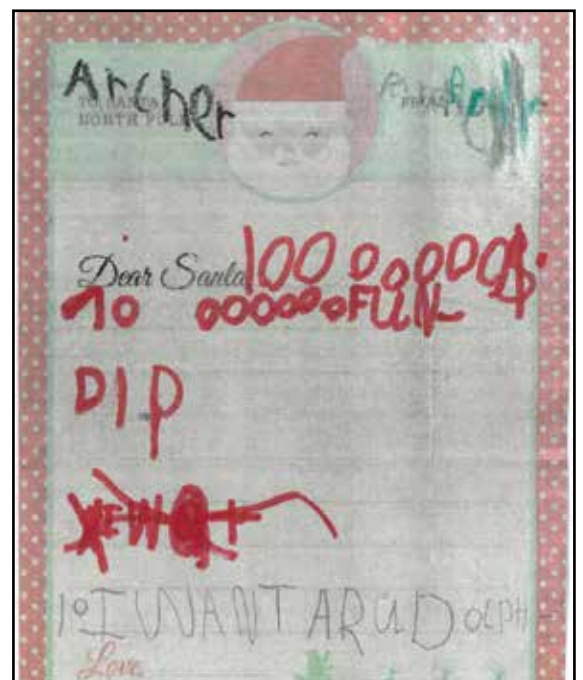 Archer
TO SANTA
NORTH POLE
FROM
Dear Santa 100 00000$
10 0000000FUN
DIP
10 I WANT A RUDolpH
Love,